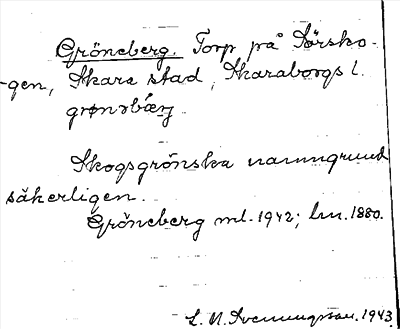 Gröneberg. Torp på Sörsko-
gen, Skara stad, Skaraborgs l.
Skogsgrönska namngrund
säkerligen.
Gröneberg ml. 1942; lm. 1880.
L. M. Svenungsson. 1943.